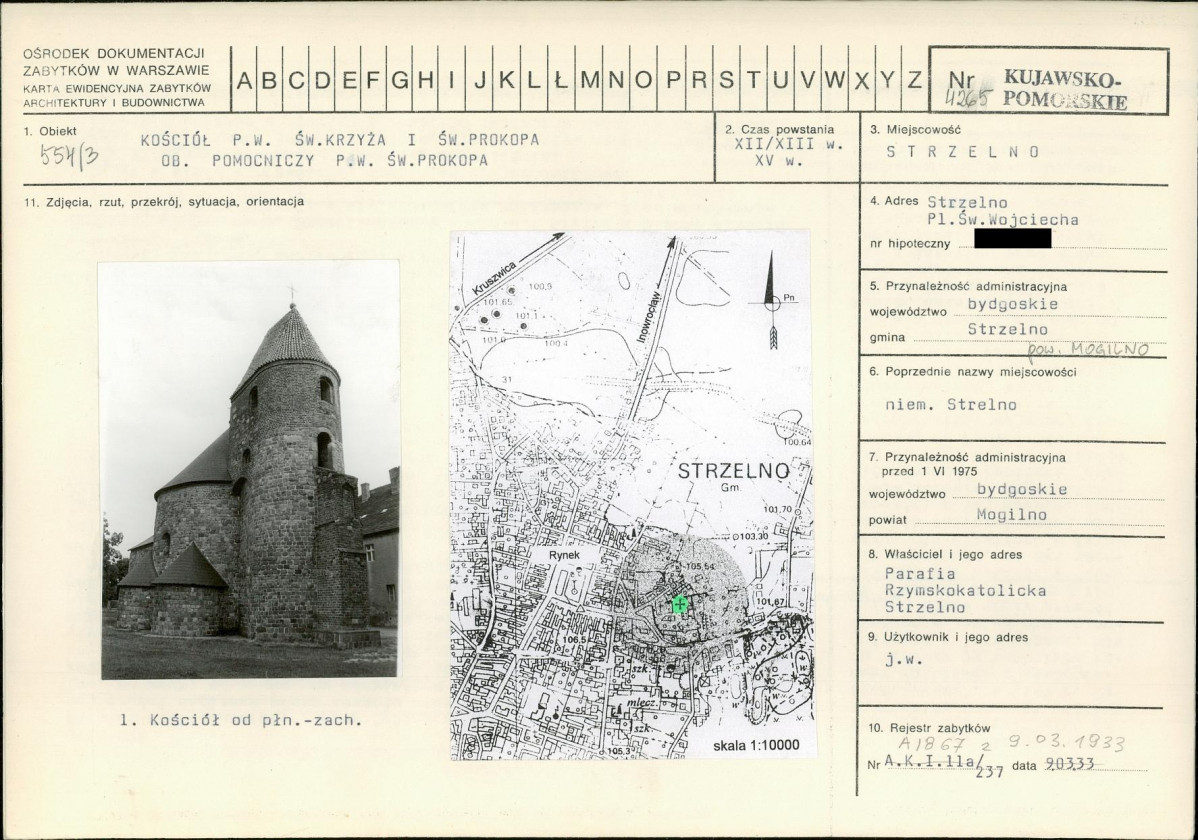 OŚRODEK DOKUMENTACJI
ZABYTKÓW W WARSZAWIE
KARTA EWIDENCYJNA ZABYTKÓW
ARCHITEKTURY I BUDOWNICTWA
A B C D E F G H I J K L Ł M N O P R S T U V W X Y Z
Nr KUJAWSKO-
4265 POMORSKIE
1. Obiekt
554/3
KOŚCIÓŁ P.W. ŚW.KRZYŻA I ŚW.PROKOPA
OB. POMOCNICZY P.W. ŚW.PROKOPA
2. Czas powstania
XII/XIII w.
XV w.
3. Miejscowość
STRZELNO
11. Zdjęcia, rzut, przekrój, sytuacja, orientacja
4. Adres Strzelno
Pl.Św.Wojciecha
nr hipoteczny
5. Przynależność administracyjna
województwo bydgoskie
gmina Strzelno
pow. MOGILNO
6. Poprzednie nazwy miejscowości
niem. Strelno
7. Przynależność administracyjna
przed 1 VI 1975
województwo bydgoskie
powiat Mogilno
8. Właściciel i jego adres
Parafia
Rzymskokatolicka
Strzelno
9. Użytkownik i jego adres
j.w.
10. Rejestr zabytków
A/867 z 9.03.1933
Nr A.K.I.11a/237 data 90333
Kruszwica
Inowrocław
Pn
100,9
101.65
101.1
101.0
100.4
31
100.64
STRZELNO
Gm.
101,70
103,30
Rynek
105,54
101,67
106,5
szk
mlecz.
szk
105,3
skala 1:10000
1. Kościół od płn.-zach.